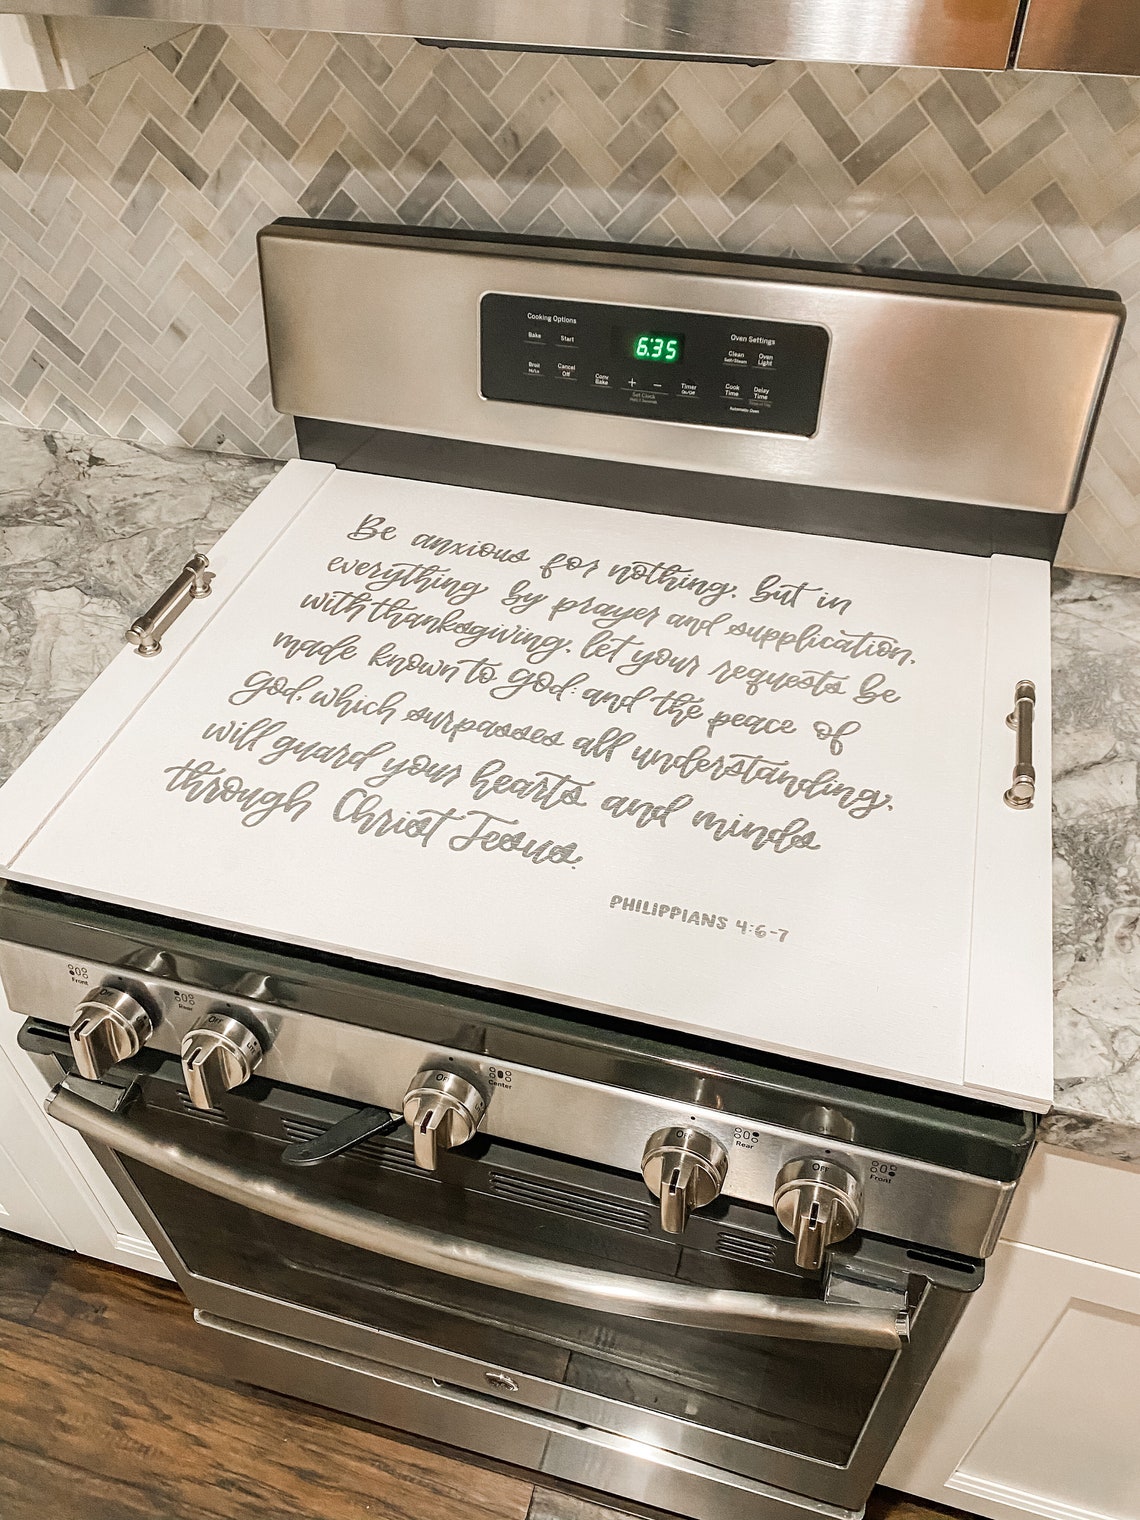 Cooking Options
Bake Start
Broil Hi/Lo Cancel Off Conv Bake
6:35
+ - Timer On/Off
Set Clock
Oven Settings
Clean Self/Steam Oven Light
Cook Time Delay Time
Automatic Oven
Be anxious for nothing, but in
everything by prayer and supplication,
with thanksgiving, let your requests be
made known to God; and the peace of
God, which surpasses all understanding,
will guard your hearts and minds
through Christ Jesus.
PHILIPPIANS 4:6-7
Front
Off
Rear
Off
Center
Off
Rear
Off
Front